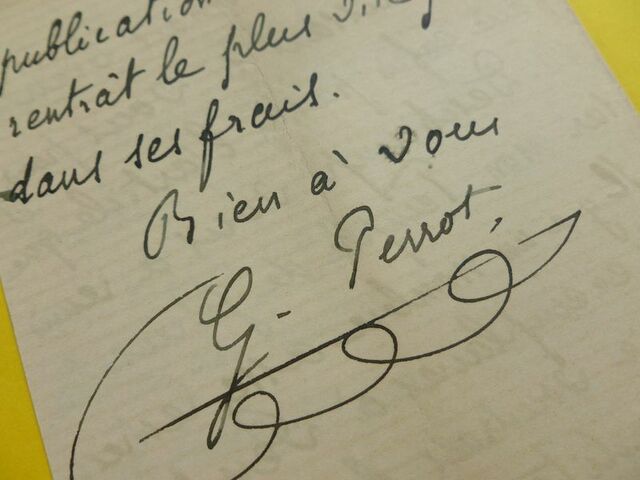 publication
rentrât le plus
dans ses frais.
Bien à vous
G. Perrot,